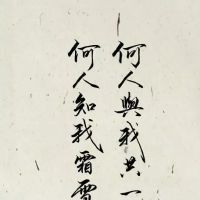 何人與我共一
何人知我霜雪